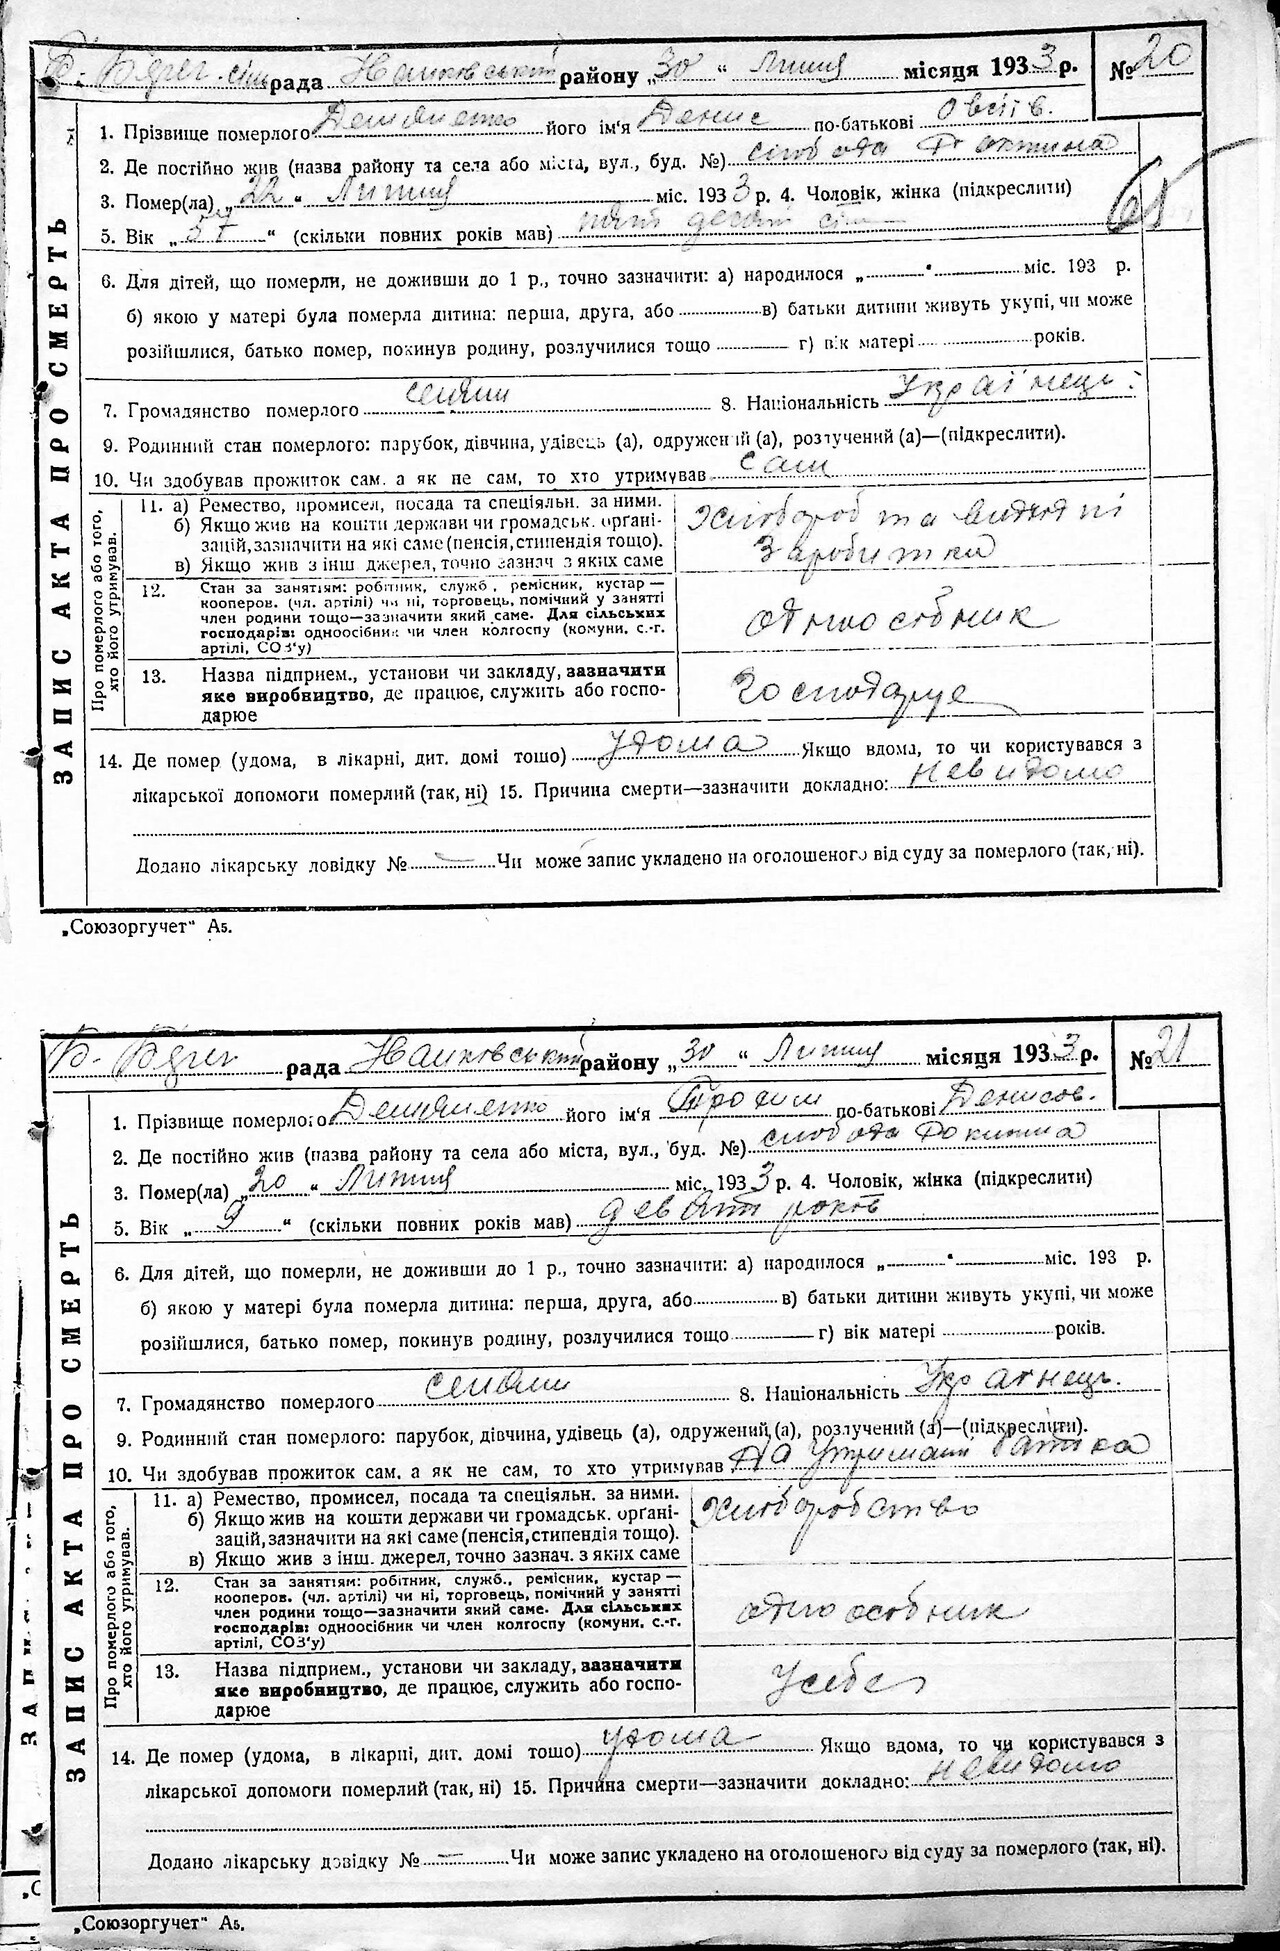 Б. Бгач. сільрада Нашковський району „30“ Липня місяця 1933 р. №20
1. Прізвище померлого Демяненко його ім'я Денис по-батькові Овсіїв.
2. Де постійно жив (назва району та села або міста, вул., буд. №) слобода Рокитна
3. Помер(ла) „22“ Липня міс. 1933 р. 4. Чоловік, жінка (підкреслити)
5. Вік „57“ (скільки повних років мав) пятдесят сім
65
6. Для дітей, що померли, не доживши до 1 р., точно зазначити: а) народилося „ “ міс. 193 р.
б) якою у матері була померла дитина: перша, друга, або в) батьки дитини живуть укупі, чи може
розійшлися, батько помер, покинув родину, розлучилися тощо г) вік матері років.
7. Громадянство померлого селянин 8. Національність Українець.
9. Родинний стан померлого: парубок, дівчина, удівець (а), одружений (а), розлучений (а)—(підкреслити).
10. Чи здобував прожиток сам. а як не сам, то хто утримував сам
Про померлого або того, хто його утримував.
11. а) Ремество, промисел, посада та спеціяльн. за ними.
б) Якщо жив на кошти держави чи громадськ. орґані-
зацій, зазначити на які саме (пенсія, стипендія тощо).
в) Якщо жив з інш джерел, точно зазнач з яких саме
Хлібороб та
заробітка
12. Стан за занятіям: робітник, служб., ремісник, кустар—
кооперов. (чл. артілі) чи ні, торговець, помічний у занятті
член родини тощо—зазначити який саме. Для сільських
господарів: одноосібник чи член колгоспу (комуни, с.-г.
артілі, СОЗ'у)
одноосібник
13. Назва підприєм., установи чи закладу, зазначити
яке виробництво, де працює, служить або госпо-
дарює
господарує
14. Де помер (удома, в лікарні, дит. домі тошо) удома Якщо вдома, то чи користувався з
лікарської допомоги померлий (так, ні) 15. Причина смерти—зазначити докладно: невидомо
Додано лікарську довідку № — Чи може запис укладено на оголошеного від суду за померлого (так, ні).
ЗАПИС АКТА ПРО СМЕРТЬ
„Союзоргучет“ А5.
рада району „30“ Липня місяця 1933 р. №21
1. Прізвище померлого Демяненко його ім'я Трохим по-батькові Денисов.
2. Де постійно жив (назва району та села або міста, вул., буд. №) слобода Рокитна
3. Помер(ла) „20“ Липня міс. 1933 р. 4. Чоловік, жінка (підкреслити)
5. Вік „9“ (скільки повних років мав) девять років
6. Для дітей, що померли, не доживши до 1 р., точно зазначити: а) народилося „ “ міс. 193 р.
б) якою у матері була померла дитина: перша, друга, або в) батьки дитини живуть укупі, чи може
розійшлися, батько помер, покинув родину, розлучилися тощо г) вік матері років.
7. Громадянство померлого селянин 8. Національність Українець.
9. Родинний стан померлого: парубок, дівчина, удівець (а), одружений (а), розлучений (а)—(підкреслити).
10. Чи здобував прожиток сам. а як не сам, то хто утримував На утриманні батька
Про померлого або того, хто його утримував.
11. а) Ремество, промисел, посада та спеціяльн. за ними.
б) Якщо жив на кошти держави чи громадськ. орґані-
зацій, зазначити на які саме (пенсія, стипендія тощо).
в) Якщо жив з інш. джерел, точно зазнач. з яких саме
Хліборобство
12. Стан за занятіям: робітник, служб., ремісник, кустар—
кооперов. (чл. артілі) чи ні, торговець, помічний у занятті
член родини тощо—зазначити який саме. Для сільських
господарів: одноосібник чи член колгоспу (комуни, с.-г.
артілі, СОЗ'у)
одноосібник
13. Назва підприєм., установи чи закладу, зазначити
яке виробництво, де працює, служить або госпо-
дарює
У себе
14. Де помер (удома, в лікарні, дит. домі тошо) удома Якщо вдома, то чи користувався з
лікарської допомоги померлий (так, ні) 15. Причина смерти—зазначити докладно: невидомо
Додано лікарську довідку № — Чи може запис укладено на оголошеного від суду за померлого (так, ні).
ЗАПИС АКТА ПРО СМЕРТЬ
„Союзоргучет“ А5.